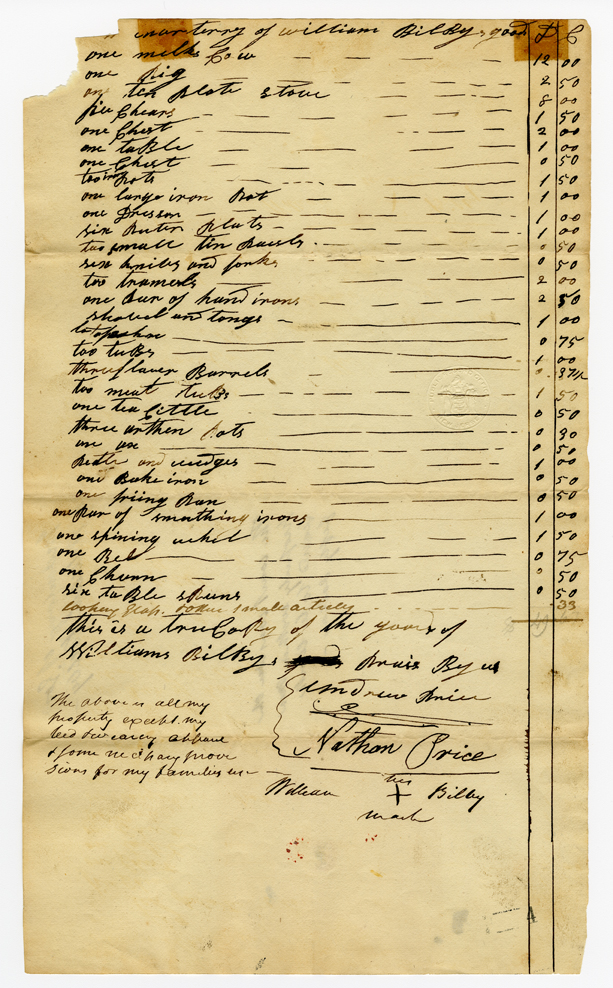 of William Bilbys good D C
one milks Cow 12 00
one Pig 2 50
one ten Plate stove 8 00
five Chears 1 50
one Chest 2 00
one table 1 00
one Chest 0 50
too Pots 1 50
one large iron Pot 1 00
one Dresser 1 00
six Puter Plats 1 00
too small tin 0 50
six knifes and forks 0 50
too tramels 2 00
one Par of hand irons 2 50
shovel and tongs 1 00
0 75
too tubs 1 00
three flower Barrels 0 37½
too meat tubs 1 50
one tea Cittle 0 50
three arthen Pots 0 30
one ax 0 50
Beatle and wedges 1 00
one Bake iron 0 50
one friing Pan 0 50
one Par of smothing irons 1 00
one spining whel 1 50
one Bel 0 75
one Churn 0 50
six table spuns 0 50
looking Glass & other small articles 33
this is a true Copy of the goods of
Williams Bilbys Prais By us
Andrew Price
Nathan Price
The above is all my
property except my
bed
& some necessary provi
sions for my families use
William his X Bilby
mark
4